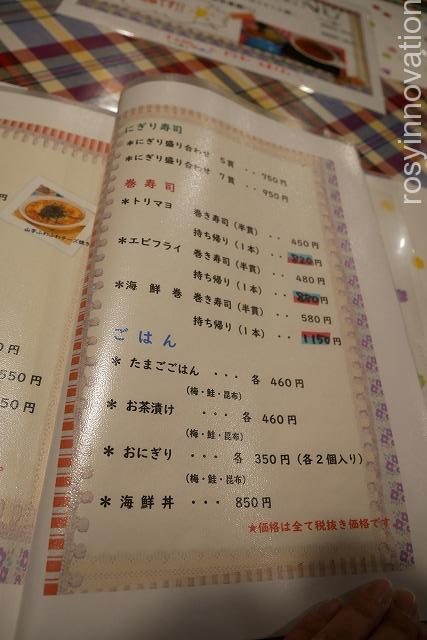 rosyinnovation
にぎり寿司
＊にぎり盛り合わせ 5貫 ・・ 750円
＊にぎり盛り合わせ 7貫 ・・ 950円
巻寿司
＊トリマヨ 巻き寿司（半貫）・・ 450円
持ち帰り（1本）・・ 円
＊エビフライ 巻き寿司（半貫）・・ 480円
持ち帰り（1本）・・ 円
＊海鮮巻 巻き寿司（半貫）・・ 580円
持ち帰り（1本）・・ 1150円
ごはん
＊たまごごはん ・・・ 各 460円
（梅・鮭・昆布）
＊お茶漬け ・・・ 各 460円
（梅・鮭・昆布）
＊おにぎり ・・・ 各 350円（各2個入り）
（梅・鮭・昆布）
＊海鮮丼 ・・・ 850円
★価格は全て税抜き価格です
550円
50円